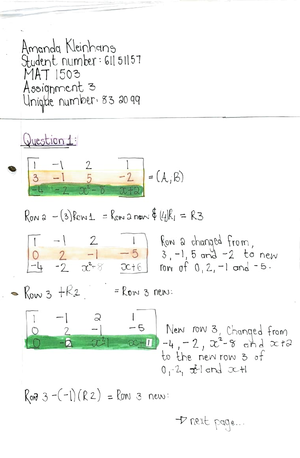 Amanda Kleinhans
Student number: 61151157
MAT 1503
Assignment 3
Unique number: 83 20 99
Question 1:
1 -1 2 1
3 -1 5 -2 = (A,B)
-4 -2 x²-8 x+2
Row 2 - (3)Row 1 = Row 2 new & (4)R1 = R3
1 -1 2 1
0 2 -1 -5
-4 -2 x²-8 x+6
Row 2 changed from,
3, -1, 5 and -2 to new
row of 0, 2, -1 and -5.
Row 3 + R2 = Row 3 new:
1 -1 2 1
0 2 -1 -5
0
New row 3, Changed from
-4, -2, x²-8 and x+2
to the new row 3 of
0, -2, x²-1 and x+1
Row 3 -(-1)(R2) = Row 3 new:
→ next page...